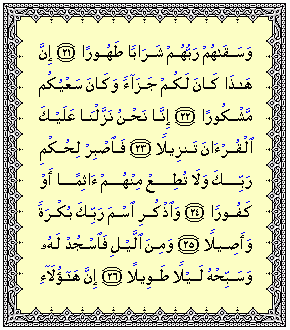 وَسَقَىٰهُمْ رَبُّهُمْ شَرَابًا طَهُورًا ﴿٢١﴾ إِنَّ
هَـٰذَا كَانَ لَكُمْ جَزَآءً وَكَانَ سَعْيُكُم
مَّشْكُورًا ﴿٢٢﴾ إِنَّا نَحْنُ نَزَّلْنَا عَلَيْكَ
ٱلْقُرْءَانَ تَنزِيلًا ﴿٢٣﴾ فَٱصْبِرْ لِحُكْمِ
رَبِّكَ وَلَا تُطِعْ مِنْهُمْ ءَاثِمًا أَوْ
كَفُورًا ﴿٢٤﴾ وَٱذْكُرِ ٱسْمَ رَبِّكَ بُكْرَةً
وَأَصِيلًا ﴿٢٥﴾ وَمِنَ ٱلَّيْلِ فَٱسْجُدْ لَهُۥ
وَسَبِّحْهُ لَيْلًا طَوِيلًا ﴿٢٦﴾ إِنَّ هَـٰٓؤُلَآءِ